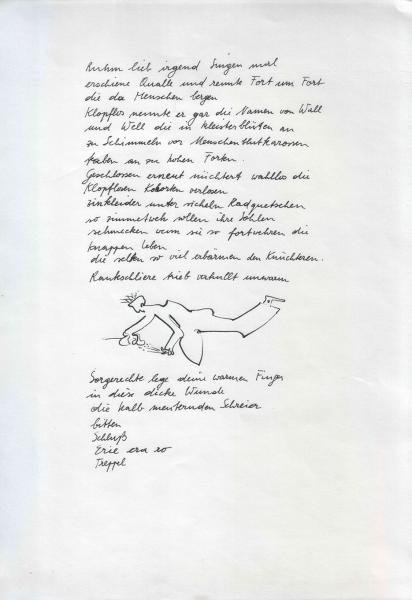 Ruhm lieb irgend Singen mal
erschiene Qualle und rennte Fort um Fort
die da Menschen bergen
Klopflos nennte er gar die Namen von Wall
und Well die in kleisterblüten an
zu Schimmeln vor Menschenblutkarossen
traben an zu hohen Forken.
Geschlossen erneut nüchtert wahllos die
Klopflosen Kohorten verlosen
zinkleider unter sicheln Radquetschen
so zimmetweh sollen ihre Sohlen
schmecken wenn sie so fortwehren die
knappen Leben
die selten so viel erbärmen den
Rankschliere trieb verhüllt unwarm
Sorgerechte lege deine warmen Finger
in diese dicke Wunde
die halb meuternden Schreier
bitten
Schluß
Erie era so
Treppel